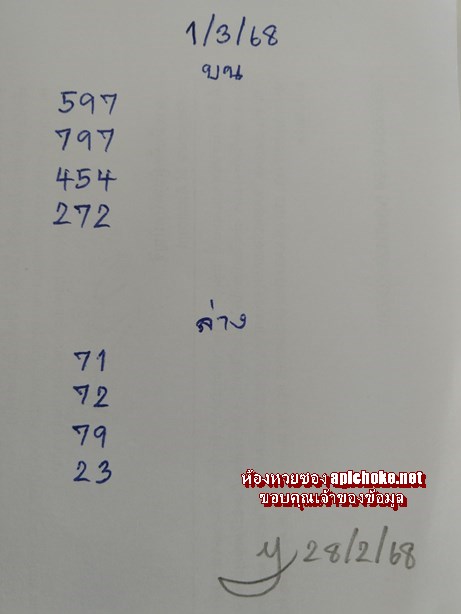 1/3/68
บน
597
797
454
272
ล่าง
71
72
79
23
ห้องหวยซอง apichoke.net
ขอบคุณเจ้าของข้อมูล
y 28/2/68